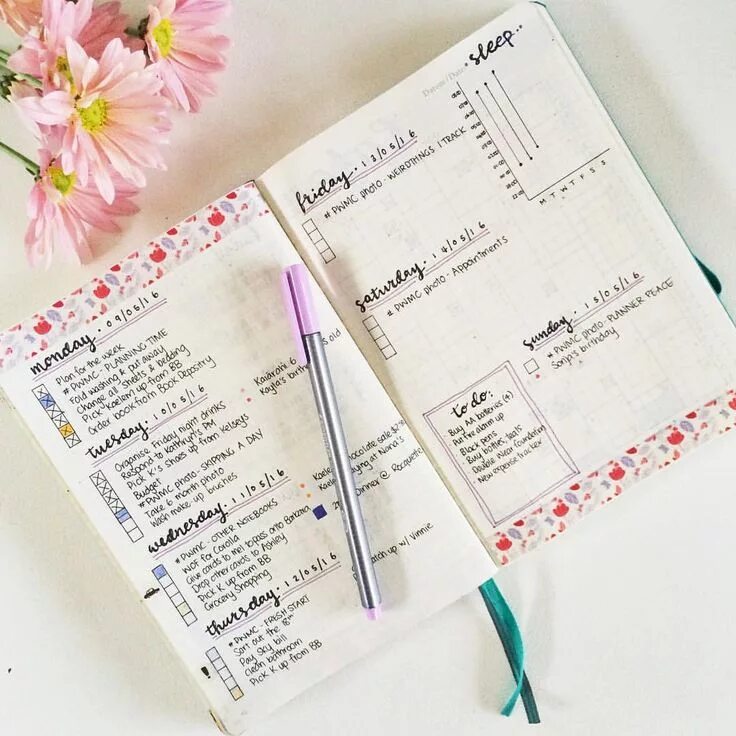 monday. 09/05/16
Plan for the week
#PWMC - PLANNING-TIME
Fold washing & put away
Change all sheets & bedding
Pick Kaelem up from BB
Order book from Book Depository
Kailarahi 6
Kayla's birthday
old
tuesday. 10/05/16
Organise Friday night drinks
Respond to Kathryn's PM
Pick K's shoes up from Kelseys
Budget
#PWMC photo - SHOPPING A DAY
Take 6 month photo
Wash make up brushes
chocolate sale
at Nana's
wednesday. 11/05/16
#PWMC - OTHER NOTEBOOKS
WOF for Corolla
Give cards to Mel to pass onto
Drop other cards to Ashley
Pick K up from BB
Grocery Shopping
Dinner @
thursday. 12/05/16
#PWMC - FRESH START
Sort out the 18th
Pay Sky bill
Clean bathroom
Pick K up from BB
catch up w/ Vinnie
friday. 13/05/16
#PWMC photo - WEIRD THINGS I TRACK
saturday. 14/05/16
#PWMC photo - Appointments
sunday. 15/05/16
#PWMC photo - PLANNER PEACE
Sonja's birthday
Datum/Date:
sleep.
M T W T F S S
to do:
- Buy AA batteries (4)
- Put fire alarm up
- Black pens
- Buy bottles, teats
- Double Wear foundation
- New expense tracker